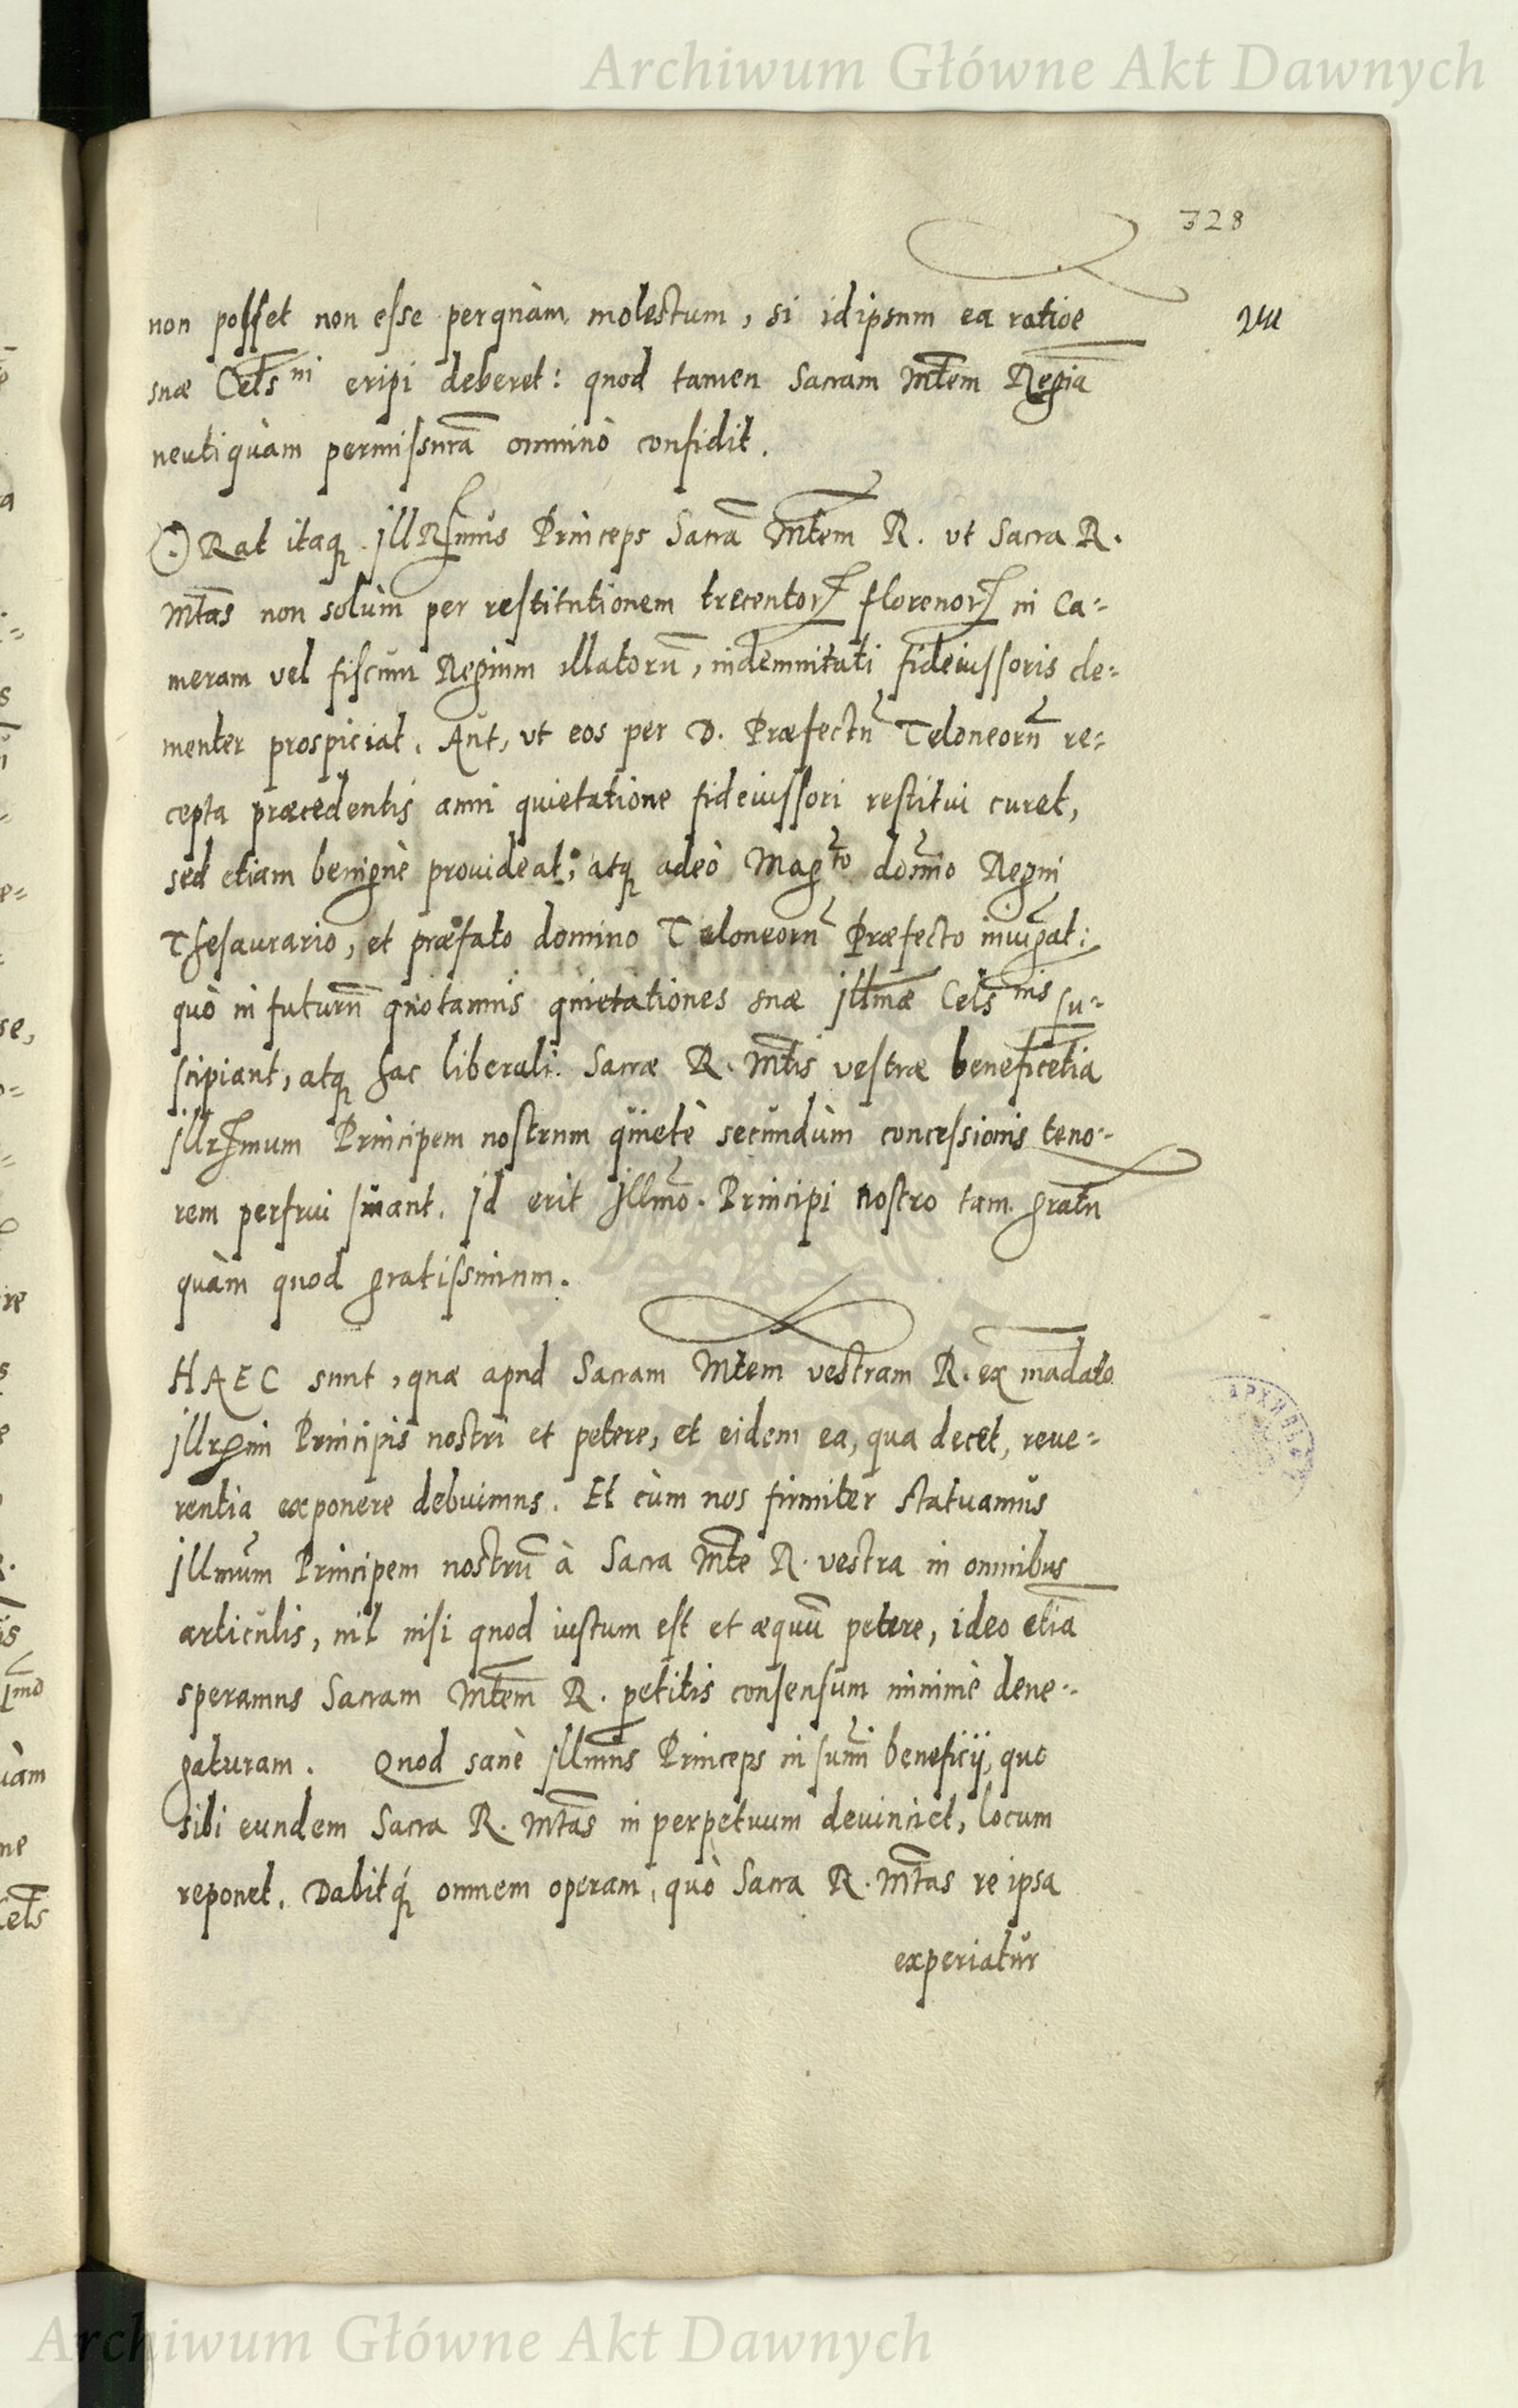 Archiwum Główne Akt Dawnych
328
non posset non esse perquàm molestum, si idipsum ea ratioe
suæ Cels ni eripi deberet: quod tamen Sacram Mtem Regiā
neutiquàm permissurā omninò confidit.
ORat itaq; JllRmus Princeps Sacrā Mtem R. vt Sacra R.
Mtas non solùm per restitutionem trecentorum florenorum in Ca=
meram vel fiscum Regium illatorū, indemnitati fideiussoris cle=
menter prospiciat. Aut, vt eos per D. Præfectū Teloneorū re=
cepta præcedentis anni quietatione fideiussori restitui curet,
sed etiam benignè prouideat; atq; adeò Mag co domino Regni
Thesaurario, et præfato domino Teloneorū Præfecto iniūgat:
quò in futurū quotannis quietationes suæ Jllmæ Cels nis su=
scipiant, atq; hac liberali Sacræ R. Mtis vestræ beneficētia
Jllrmum Principem nostrum quietè secundùm concessionis teno=
rem perfrui sinant. Jd erit Jllmo. Principi nostro tam gratū
quàm quod gratissimum.
HAEC sunt, quæ apud Sacram Mtem vestram R. ex mādato
Jllrmi Principis nostri et petere, et eidem ea, qua decet, reue=
rentia exponere debuimus. Et cùm nos firmiter statuamus
Jllmum Principem nostrū à Sacra Mte R. vestra in omnibus
articulis, nil nisi quod iustum est et æquū petere, ideo etiā
speramus Sacram Mtem R. petitis consensum minimè dene=
gaturam. Quod sanè Jllmus Princeps in summi beneficij, quo
sibi eundem Sacra R. Mtas in perpetuum deuinciet, locum
reponet. Dabitq́; omnem operam, quò Sacra R. Mtas re ipsa
experiatur
Archiwum Główne Akt Dawnych